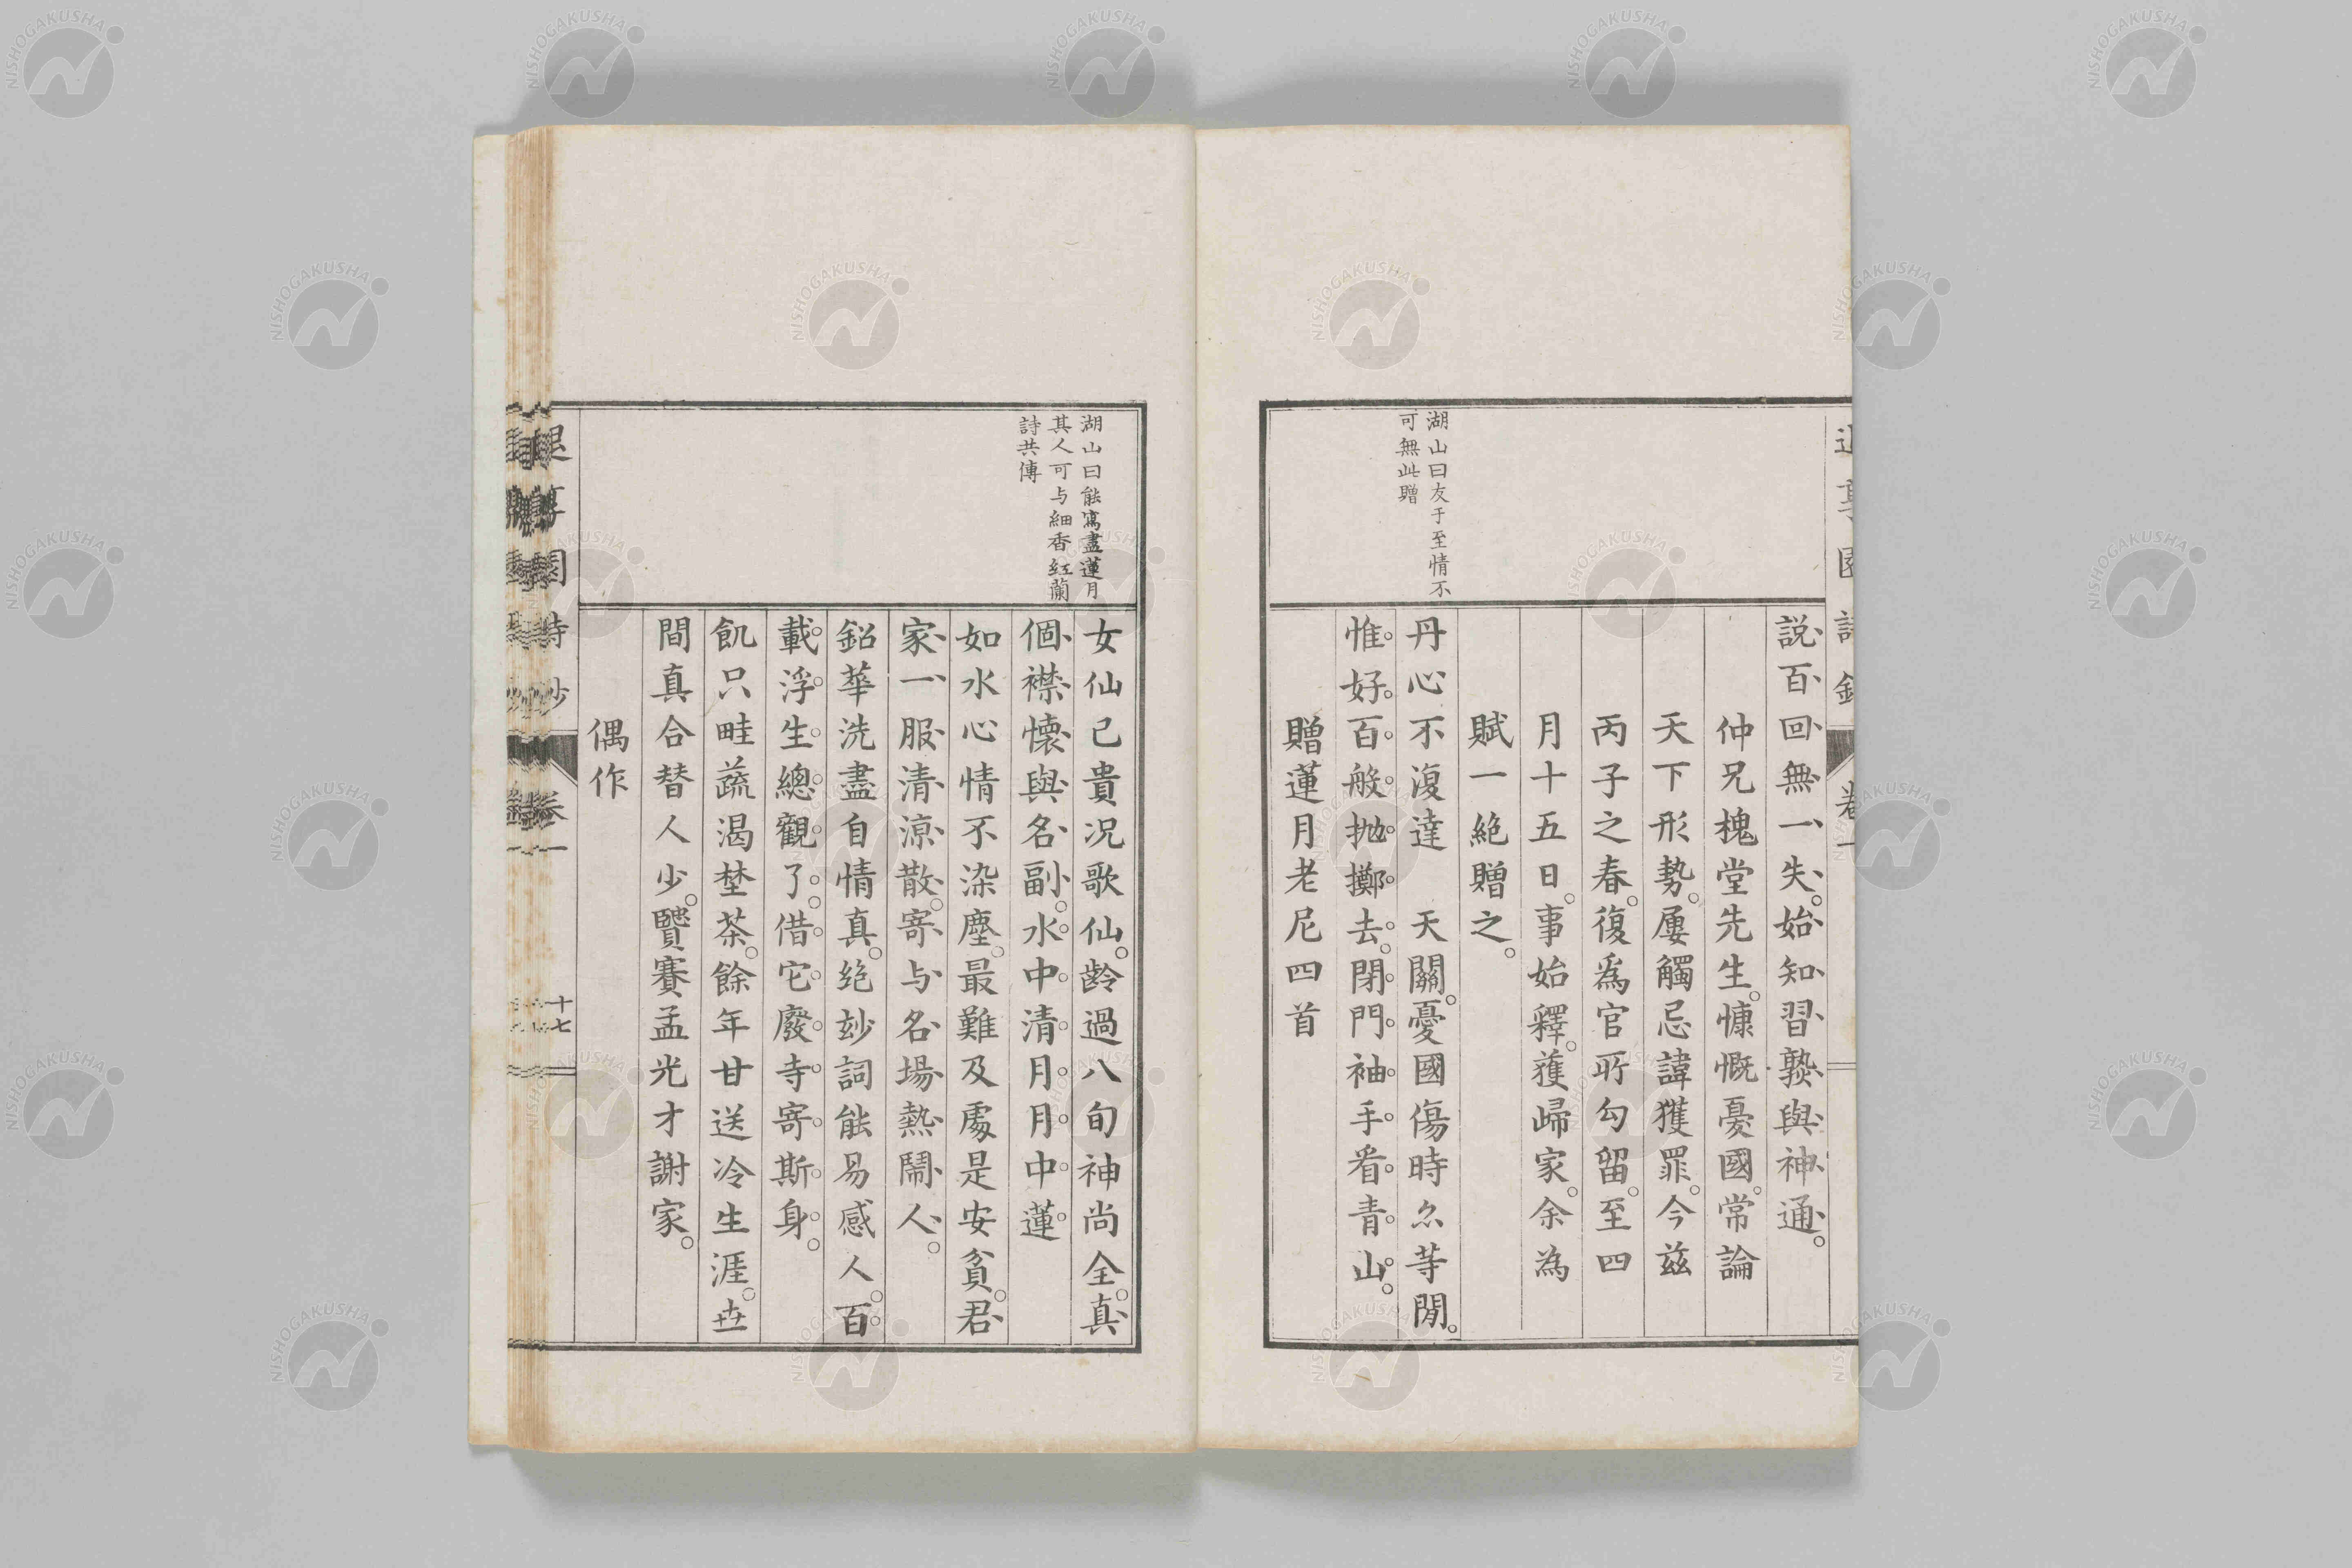 説百回無一失。始知習熟與神通。
仲兄槐堂先生。慷慨憂國。常論
天下形勢。屢觸忌諱獲罪。今茲
丙子之春。復為官所勾留。至四
月十五日。事始釋。獲歸家。余為
賦一絶贈之。
湖山曰友于至情不
可無此贈
丹心不復達　天關。憂國傷時尒等閒。
惟好百般抛擲去。閉門袖手看青山。
贈蓮月老尼四首
湖山曰能寫盡蓮月
其人可与細香紅蘭
詩共傳
女仙已貴况歌仙。齡過八旬神尚全。真
個襟懷與名副。水中清月月中蓮
如水心情不染塵。最難及處是安貧。君
家一服清涼散。寄与名場熱鬧人。
鉛華洗盡自情真。絶玅詞能易感人。百
載浮生總觀了。借它廢寺寄斯身。
飢只畦蔬渇埜茶。餘年甘送冷生涯。丗
間真合替人少。賢賽孟光才謝家。
偶作
退享園詩鈔
卷一
十七